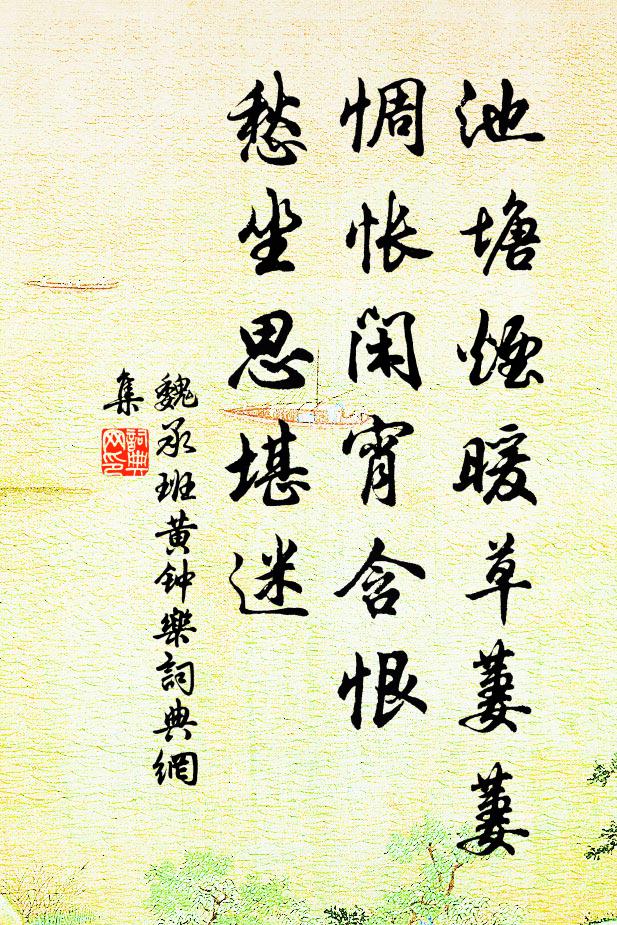 池塘煙暖草萋萋
惆怅闲宵含恨
愁坐思堪迷
魏承班黄钟樂詞典網
集
詞典
网印